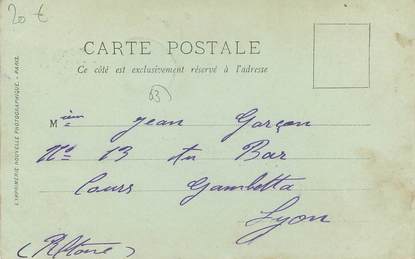 20 €
CARTE POSTALE
Ce côté est exclusivement réservé à l'adresse
93
M Jean Garçon
N° 13 du Bar
Cours Gambetta
Lyon
(Rhône)
L'IMPRIMERIE NOUVELLE PHOTOGRAPHIQUE. - PARIS.